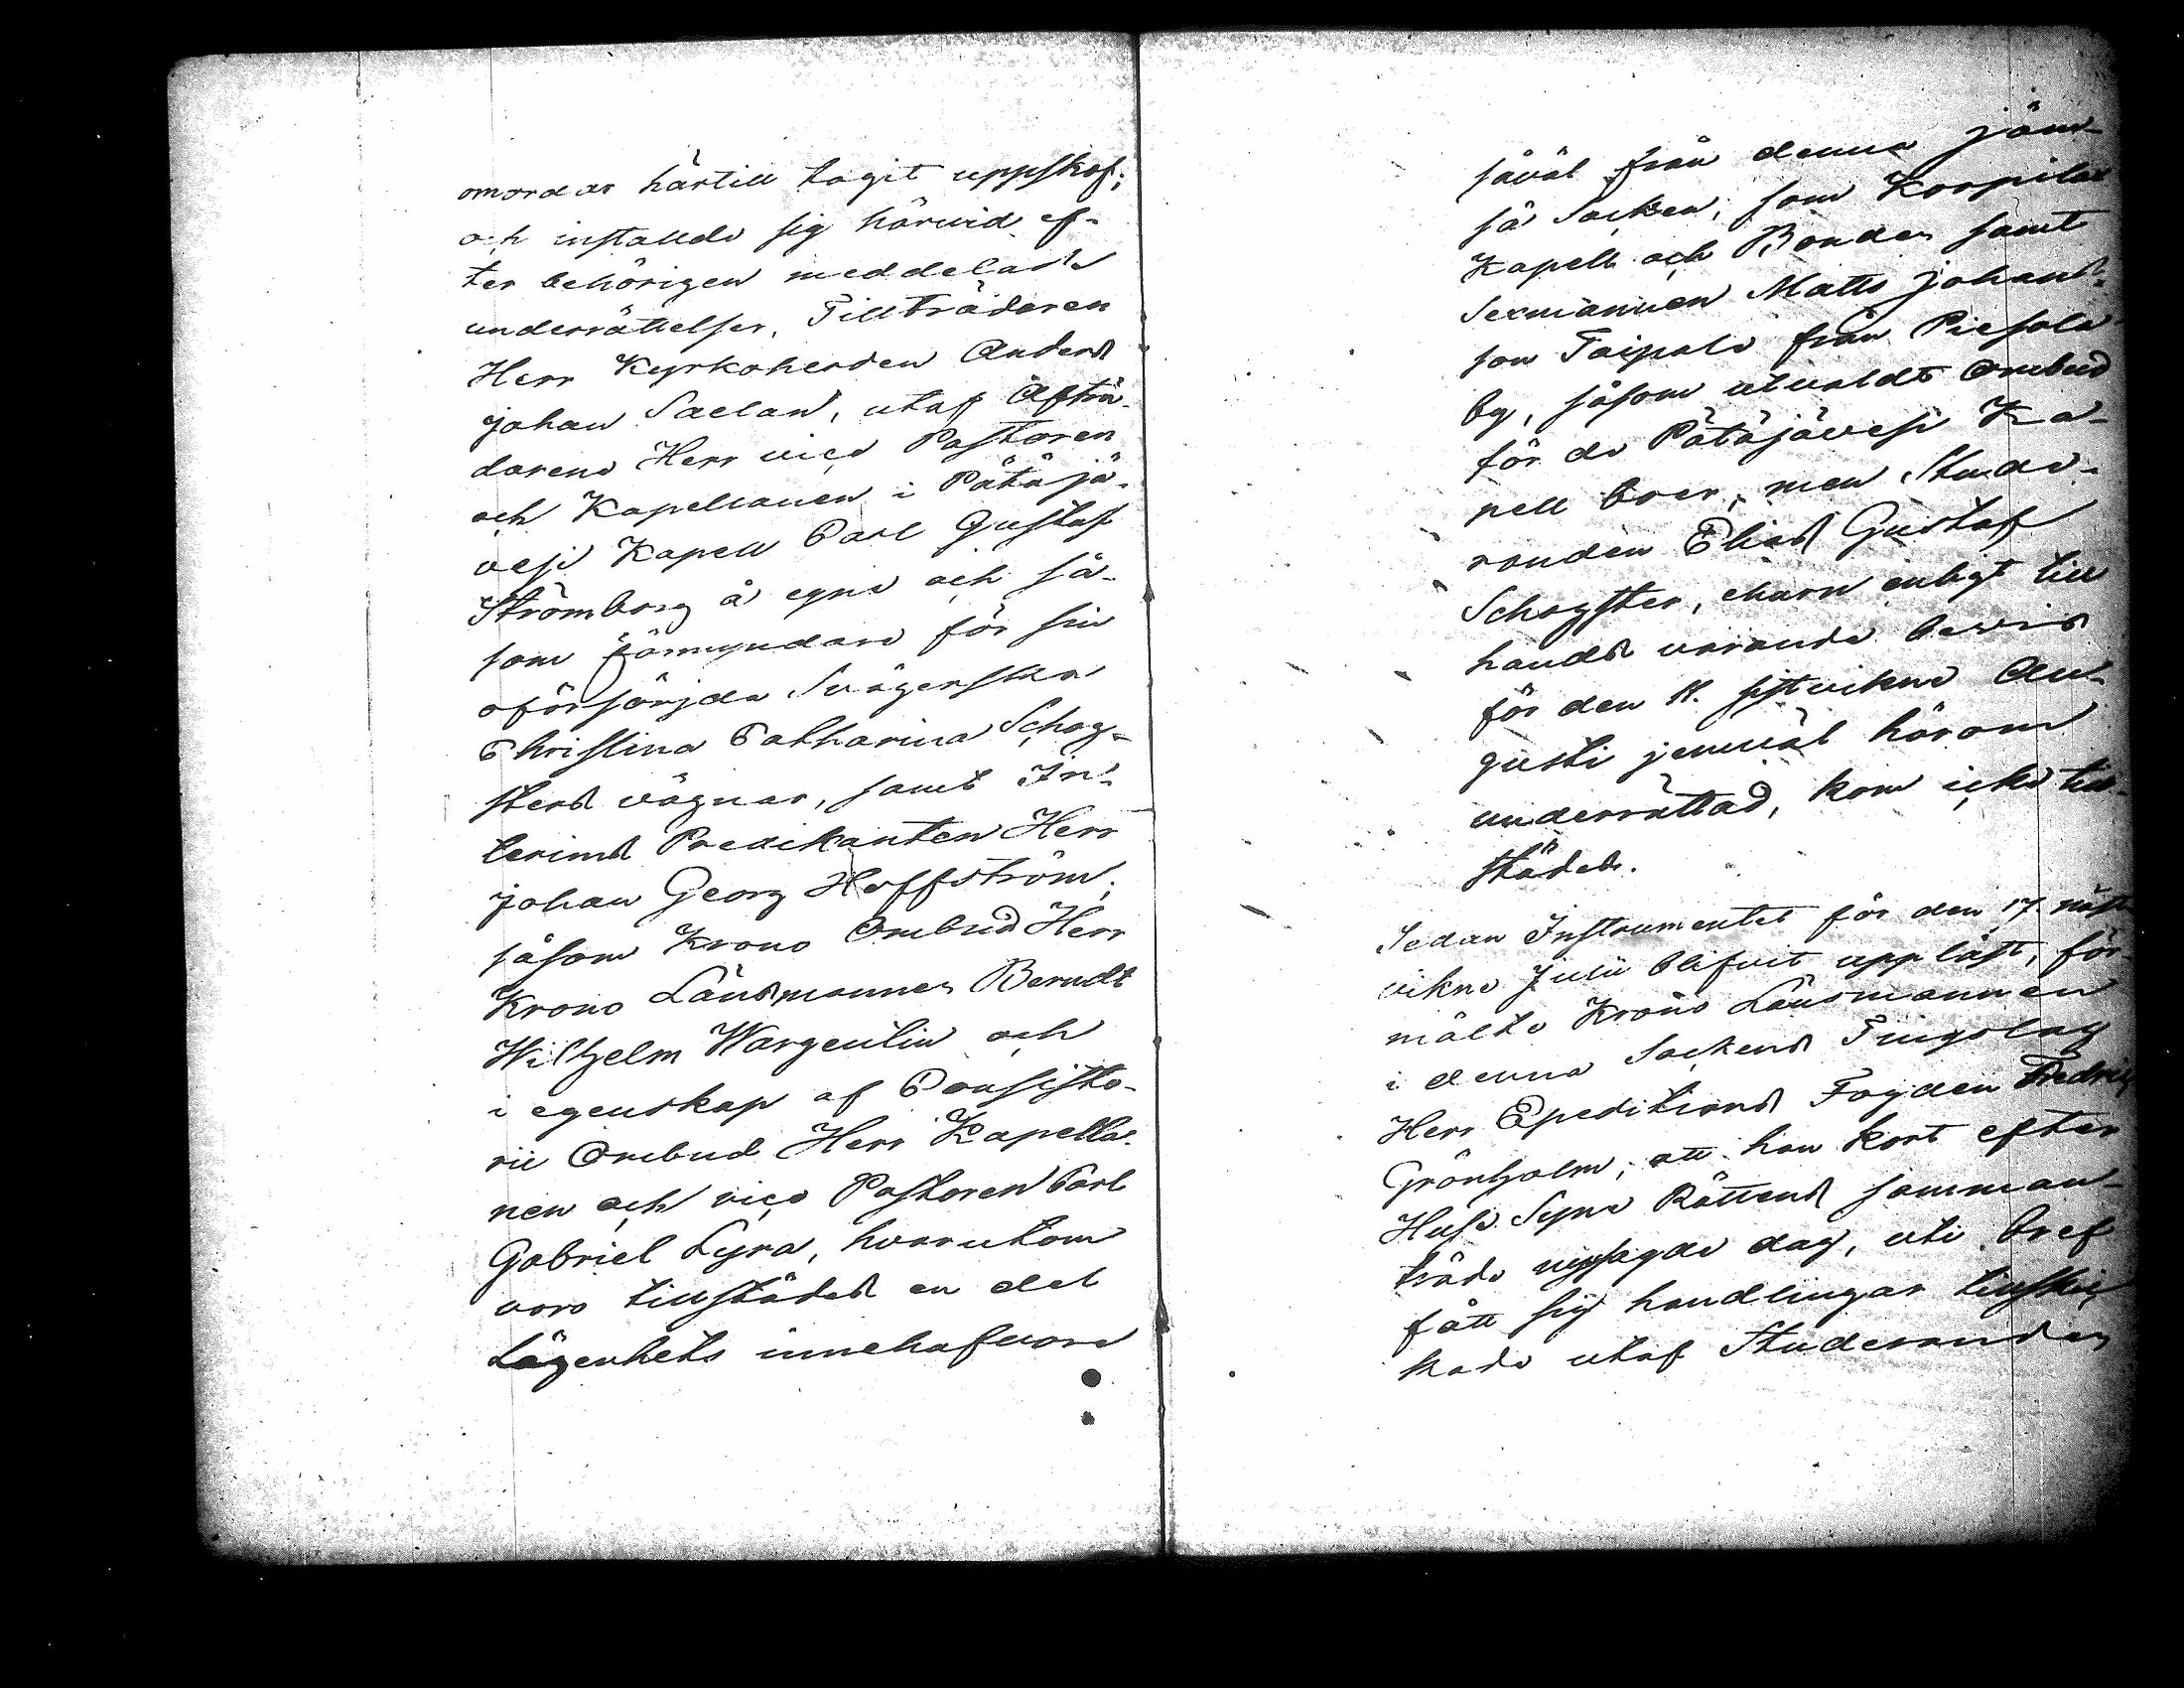 omordar härtill tagit uppskof;
och instälde sig härvid ef-
ter behörigen meddelade
underrättelser, Tillträdaren
Herr Kyrkoherden Anders
Johan Saelan, utaf Afträ-
darene Herr vice Pastoren
och Kapellanen i Pätäjä-
vesi Kapell Carl Gustaf
Strömborg å egne och så-
som förmyndare för sin
oförsörjda Svägerskas
Christina Catharina Schog-
sters vägnar, samt In-
terims Predikanten Herr
Johan Georg Hoffström,
såsom Krono Ombud Herr
Krono Länsmannen Berndt
Wilhelm Wargentin och
i egenskap af Consisto-
rii Ombud Herr Kapella-
nen och vice Pastoren Carl
Gabriel Lyra, hvarutom
voro tillstädes en del
Lägenhets innehafvare
såväl från denna jäm-
sä Socken, som Korpilax
Kapell och Bonden samt
Sexmannen Matts Johans-
son Taipale från Piesala
by, såsom utvalde Ombud
för de Pätäjävesi Ka-
pell boer, men Stude-
randen Elias Gustaf
Schogster, eharu enligt till
hands varande bevis
för den 11. sistvikne Au-
gusti jemväl härom
underrättad, kom icke till-
städes.
Sedan Instrumentet för den 17. näst
vikne Julii blifvit uppläst, för-
mälte Krono Länsmannen
i denna Sockens Tingslag
Herr Expeditions Fogden Fredric
Grönholm, att han kort efter
Huse Syns Rättens samman-
träde nyssagde dag, uti bref
fått sig handlingar tillskic
kade utaf Studeranden